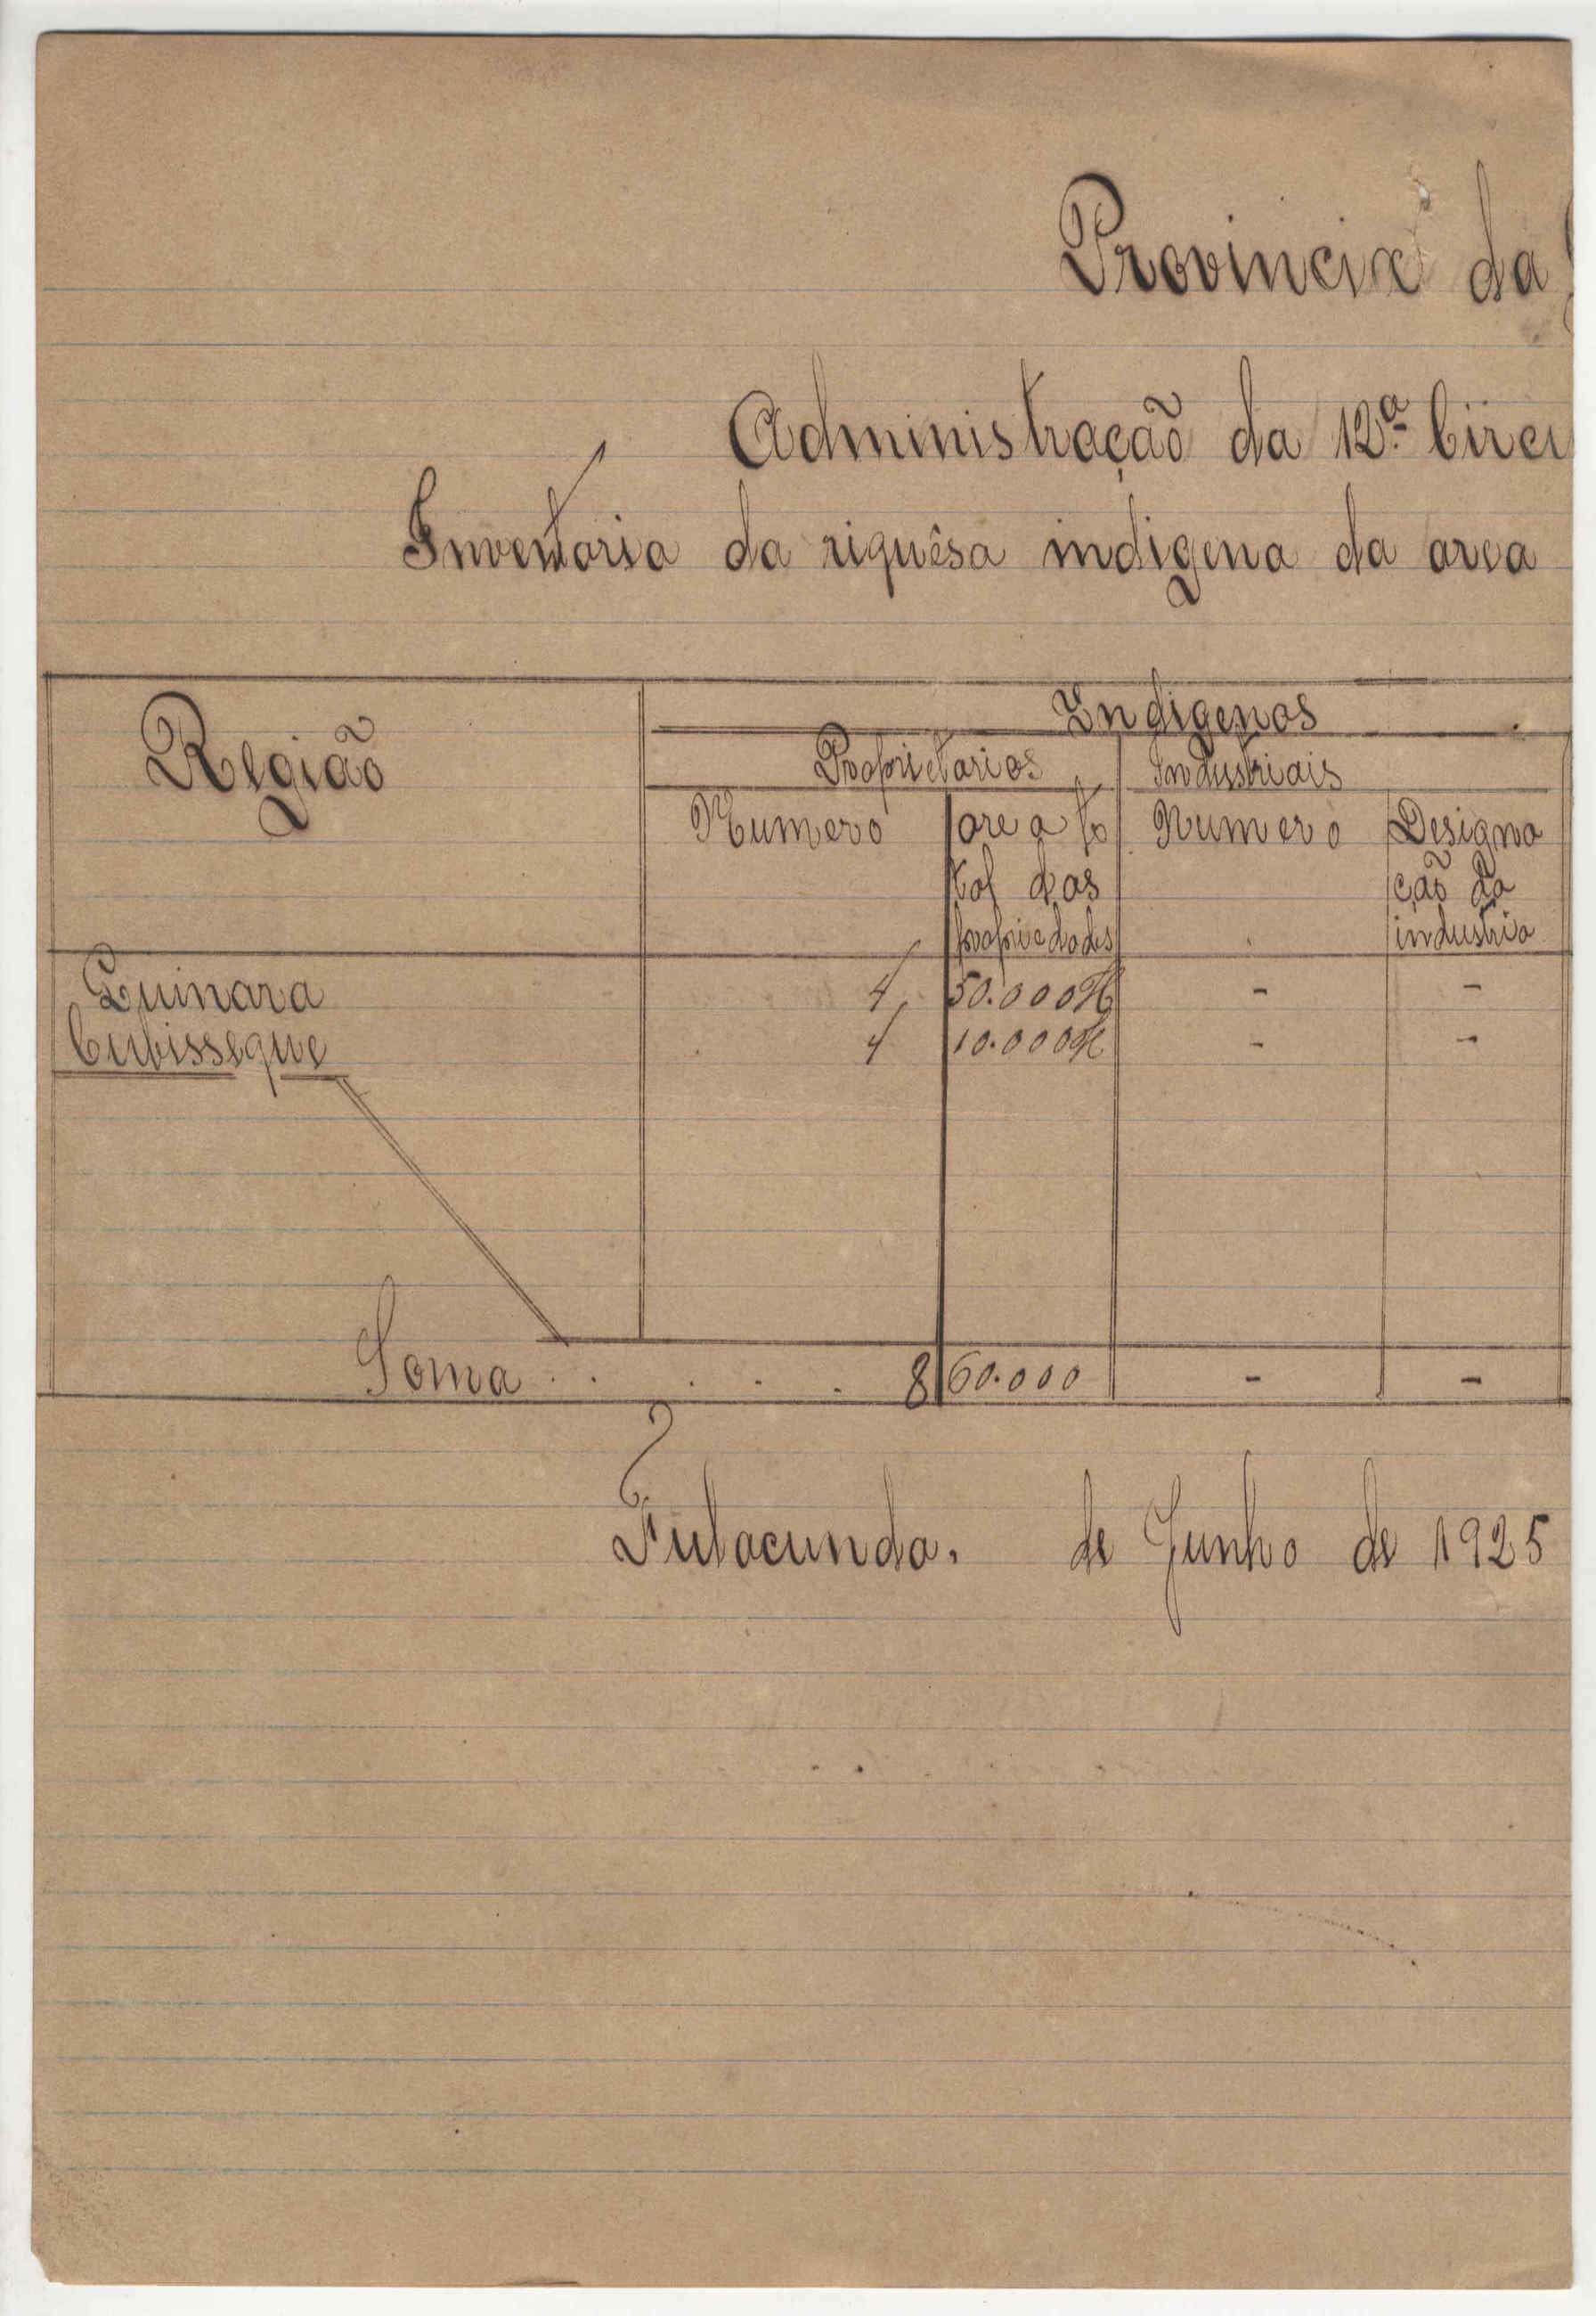 Provincia da
Administração da 12ª Circu
Inventario da riquêsa indigena da area
Região
Indigenas
Proprietarios Industriais
Numero area to Numero Designa
tal das ção da
propriedades industria
Quinara 4 50.000H - -
Cubisseque 4 10.000H - -
Soma . . . . . 8 60.000 - -
Fulacunda, de Junho de 1925